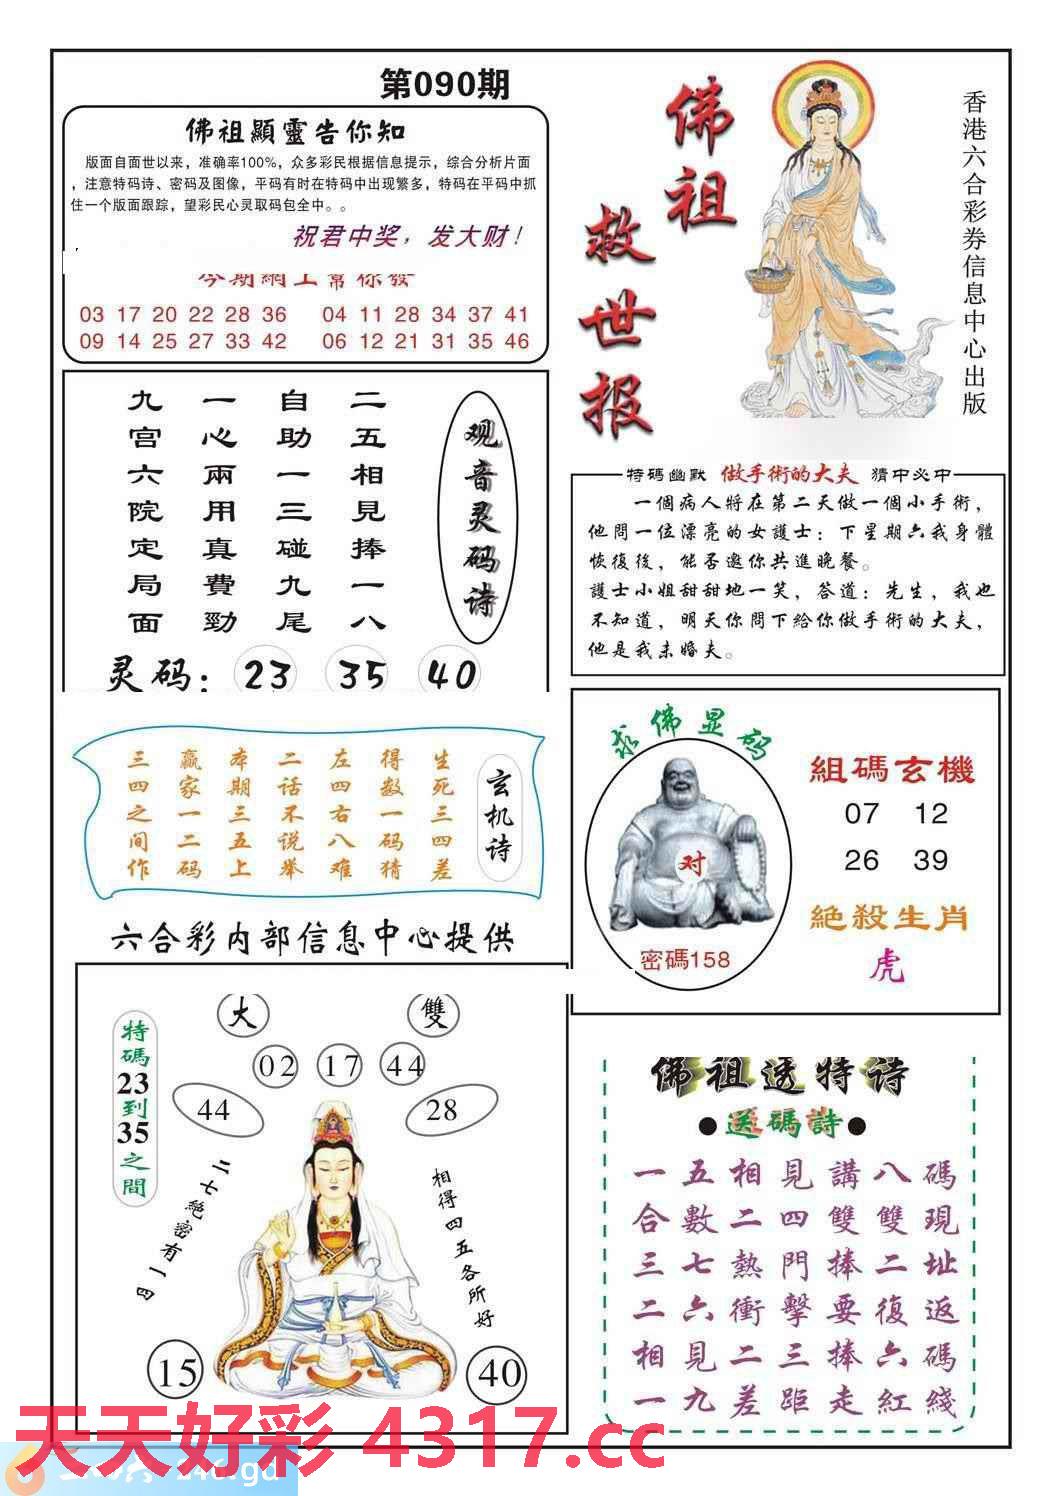 第090期
佛祖顯靈告你知
版面自面世以来，准确率100%，众多彩民根据信息提示，综合分析片面
，注意特码诗、密码及图像，平码有时在特码中出现繁多，特码在平码中抓
住一个版面跟踪，望彩民心灵取码包全中。。
祝君中奖，发大财！
今期網上幫你發
03 17 20 22 28 36 04 11 28 34 37 41
09 14 25 27 33 42 06 12 21 31 35 46
佛祖
救世报
香港六合彩券信息中心出版
观音灵码诗
二五相見捧一八
自助一三碰九尾
一心兩用真費勁
九宫六院定局面
灵码：23 35 40
特碼幽默 做手術的大夫 猜中必中
一個病人將在第二天做一個小手術，
他問一位漂亮的女護士：下星期六我身體
恢復後，能否邀你共進晚餐。
護士小姐甜甜地一笑，答道：先生，我也
不知道，明天你問下給你做手術的大夫，
他是我未婚夫。
玄机诗
生死三四差
得数一码猜
左四右八难
二话不说举
本期三五上
赢家一二码
三四之间作
求佛显码
对
密碼158
組碼玄機
07 12
26 39
絕殺生肖
虎
六合彩内部信息中心提供
大 雙
02 17 44
44 28
特碼23到35之間
二七絕密有一四
相得四五各所好
15 40
佛祖透特诗
●送碼詩●
一五相見講八碼
合數二四雙雙現
三七熱門捧二址
二六衝擊要復返
相見二三捧六碼
一九差距走紅綫
天天好彩 4317.cc
246.gd